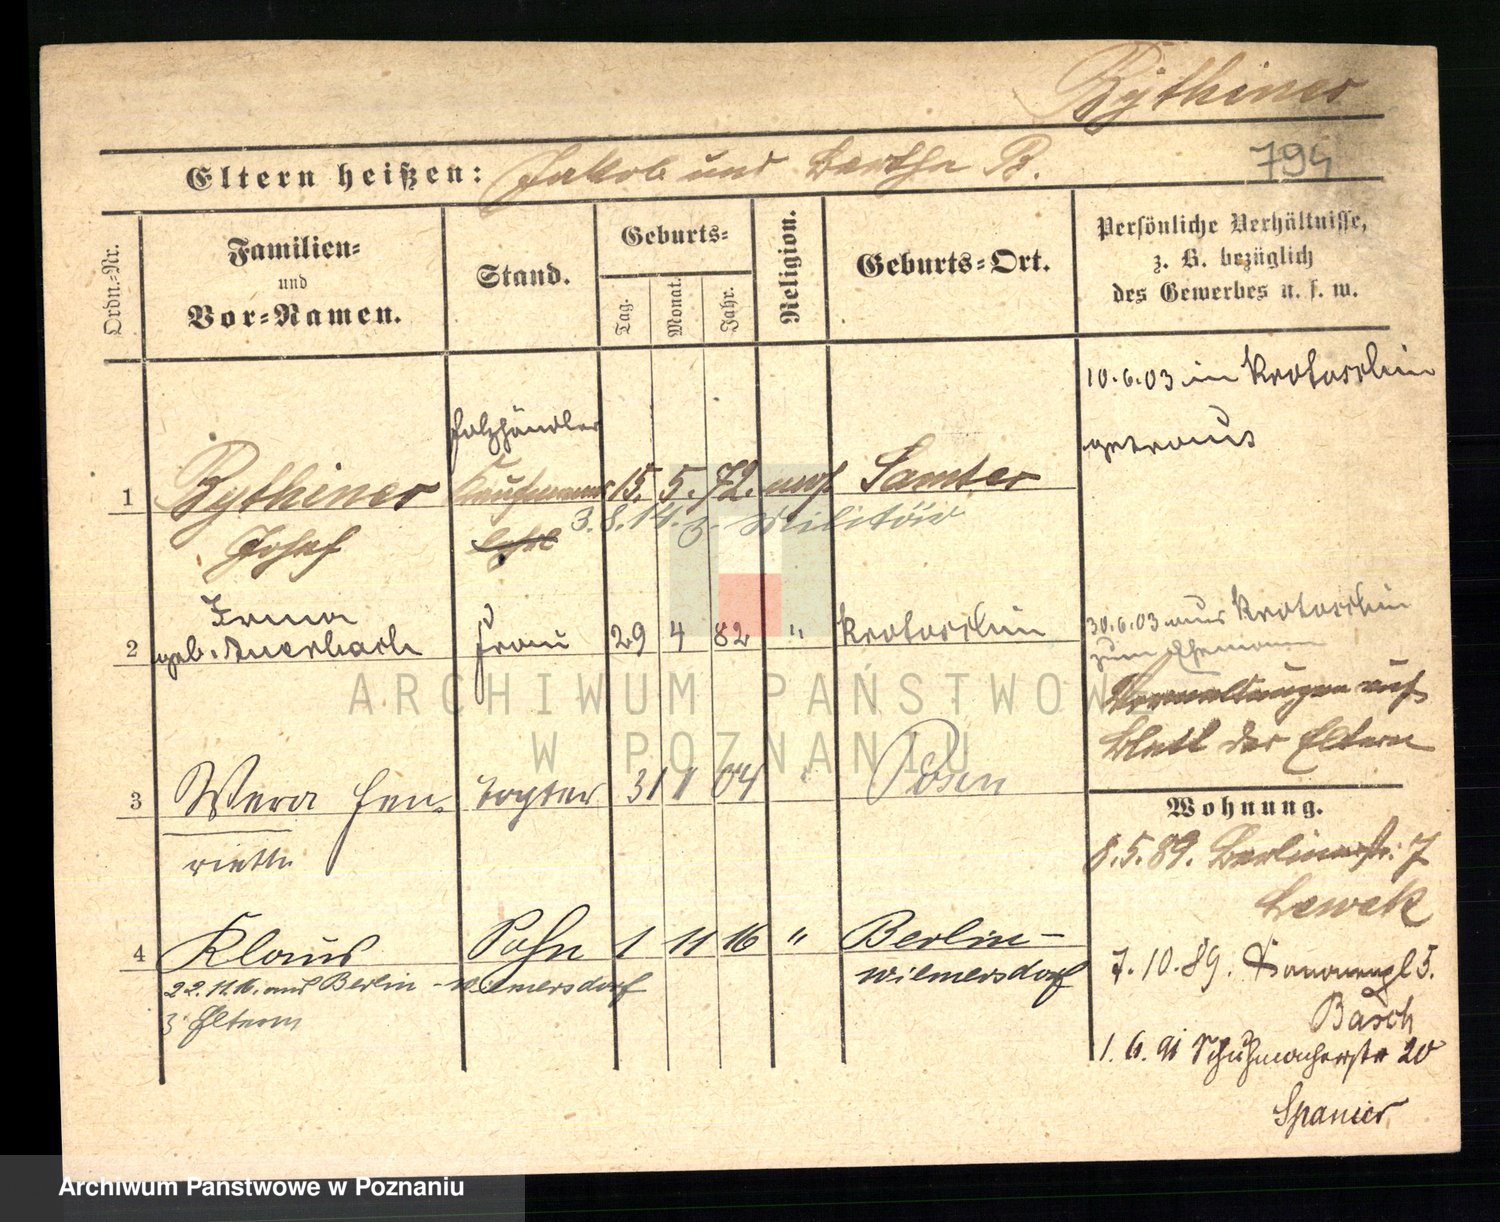 Bythiner
Eltern heißen: Jakob und Bertha B.
794
Ordn.-Nr.
Familien-
und
Vor-Namen.
Stand.
Geburts-
Tag.
Monat.
Jahr.
Religion.
Geburts-Ort.
Persönliche Verhältnisse,
z. B. bezüglich
des Gewerbes u. s. w.
10.6.03 in Krotoschin
getraut
Holzhändler
1 Bythiner Kaufmanns 15. 5. 72. mos. Samter
Josef Lehrl 3.8.14. z. Militär
2 Irma
geb. Auerbach Frau 29 4 82 " Krotoschin
30.6.03 aus Krotoschin
zum Ehemann
auf
Blatt der Eltern
3 Wera Hen- Tochter 31 1 04 " Posen
riette
Wohnung.
8.5.89. Berlinerstr. 7
Lewek
4 Klaus Sohn 1 11 16 " Berlin-
wilmersdorf
22.11.16. aus Berlin-wilmersdorf
z. Eltern
7.10.89. 5.
Basch
1.6.91 Schuhmacherstr 20
Spanier
ARCHIWUM PAŃSTWOWE
W POZNANIU
Archiwum Państwowe w Poznaniu